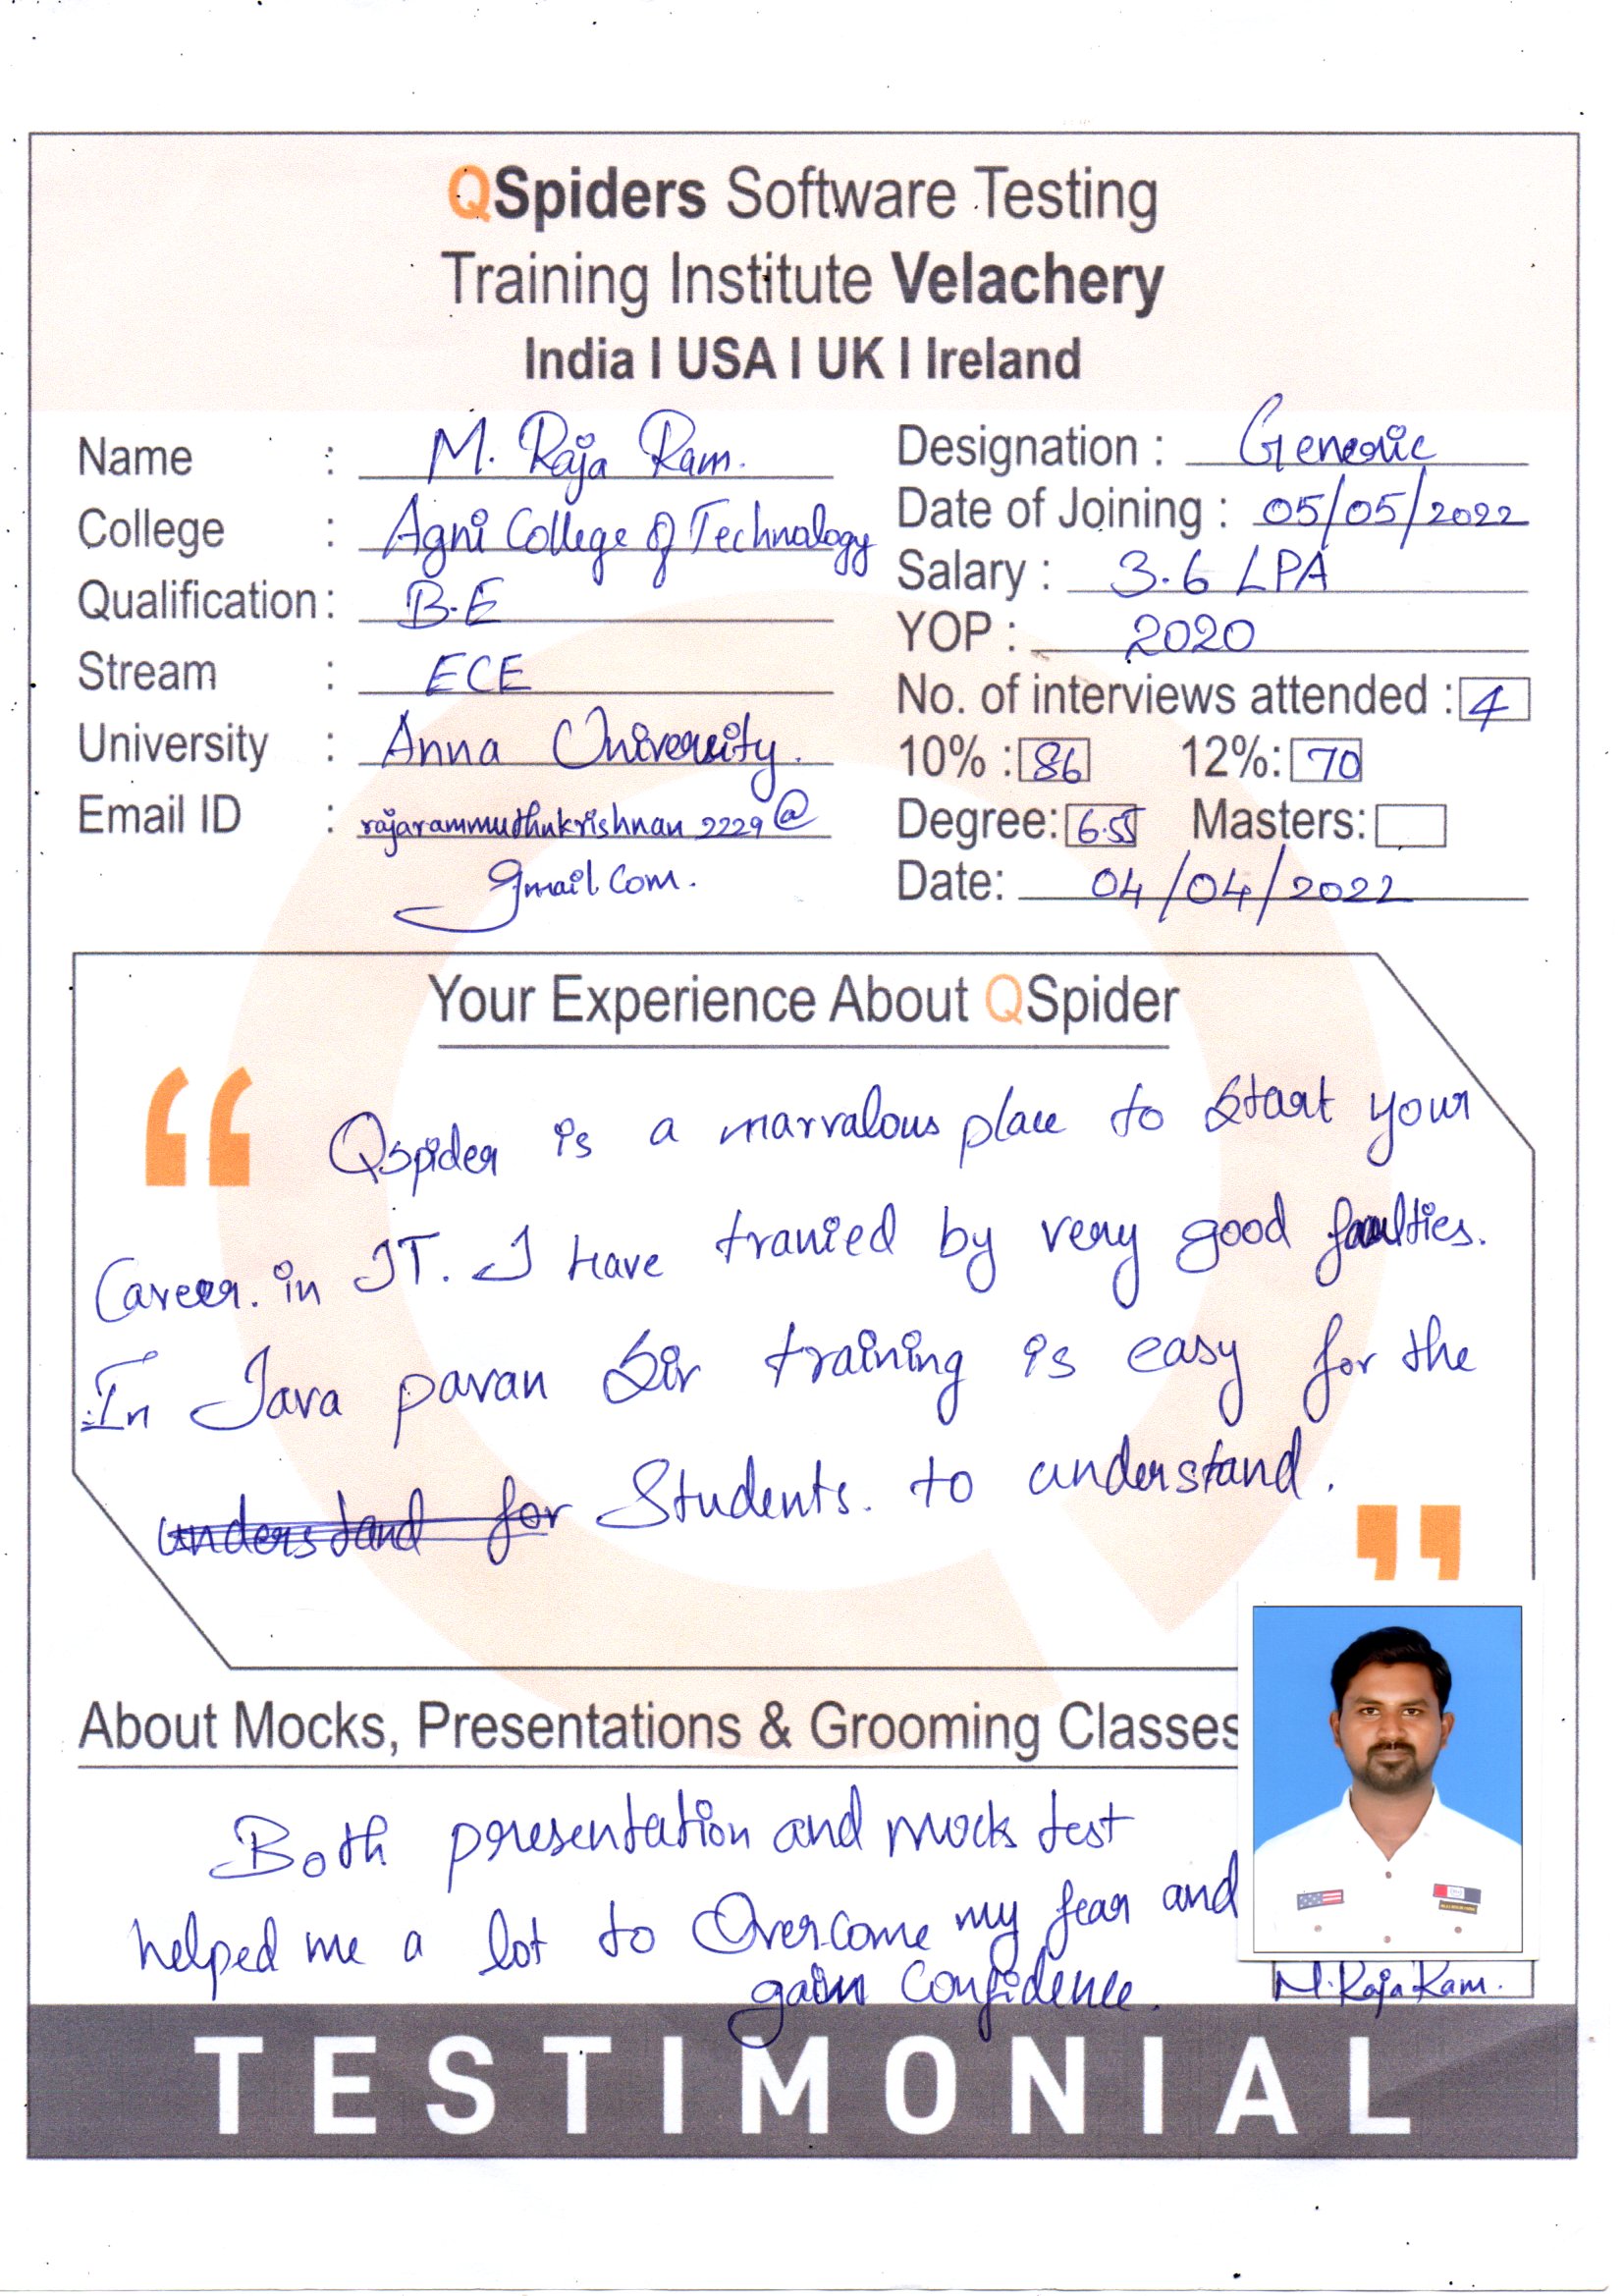 QSpiders Software Testing
Training Institute Velachery
India I USA I UK I Ireland
Name : M. Raja Ram.
College : Agni College of Technology
Qualification : B.E
Stream : ECE
University : Anna University.
Email ID : rajarammuthukrishnan2229@
gmail.com.
Designation : Generic
Date of Joining : 05/05/2022
Salary : 3.6 LPA
YOP : 2020
No. of interviews attended : 4
10% : 86 12%: 70
Degree: 6.55 Masters:
Date: 04/04/2022
Your Experience About QSpider
“
Qspider is a marvalous place to start your
Career. in IT. I Have tranied by very good faculties.
In Java pavan Sir training is easy for the
understand for Students. to understand.
”
About Mocks, Presentations & Grooming Classes
Both presentation and mocks test
helped me a lot to Overcome my fear and
gain Confidence.
M. Raja Ram.
TESTIMONIAL